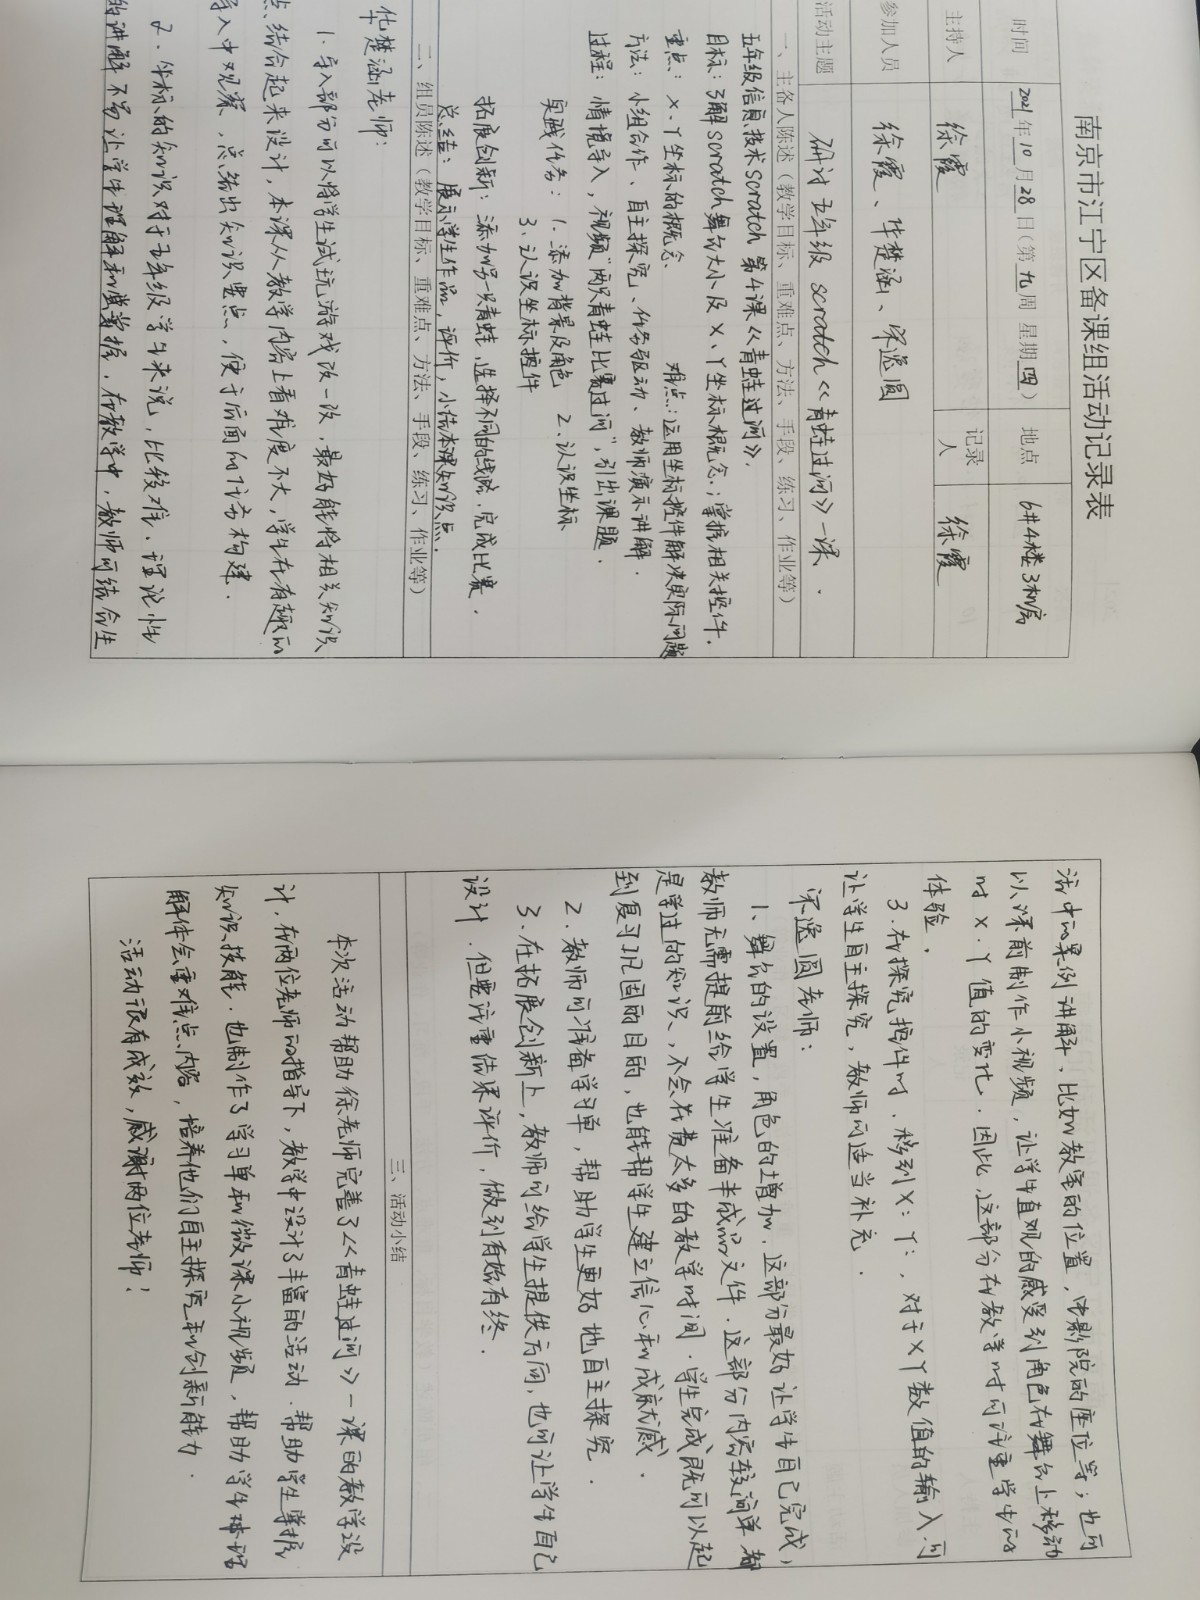 南京市江宁区备课组活动记录表
时间 2021年10月28日（第九周 星期四） 地点 6#4楼3机房
主持人 徐霞 记录人 徐霞
参加人员 徐霞、华楚涵、宋逸圆
活动主题 研讨五年级scratch《青蛙过河》一课.
一、主备人陈述（教学目标、重难点、方法、手段、练习、作业等）
五年级信息技术scratch第4课《青蛙过河》.
目标：了解scratch舞台大小及X、Y坐标概念；掌握相关控件.
重点：X、Y坐标的概念. 难点：运用坐标控件解决实际问题
方法：小组合作、自主探究、任务驱动、教师演示讲解.
过程：情境导入，视频"两只青蛙比赛过河"，引出课题.
实践任务：1.添加背景及角色 2.认识坐标
3.认识坐标控件
拓展创新：添加另一只青蛙，选择不同的线路，完成比赛.
总结：展示学生作品，评价，小结本课知识点.
二、组员陈述（教学目标、重难点、方法、手段、练习、作业等）
华楚涵老师：
1.导入部分可以将学生试玩游戏改一改，最好能将相关知识
点结合起来设计，本课从教学内容上看难度不大，学生在有趣的
导入中观察，总结出知识要点，便于后面的任务构建.
2.坐标的知识对于五年级学生来说，比较难，理论性
的讲解不易让学生理解和掌握，在教学中，教师可结合生
活中的案例讲解，比如教室的位置，电影院的座位等；也可
以课前制作小视频，让学生直观的感受到角色在舞台上移动
时X、Y值的变化.因此，这部分在教学时可注重学生的
体验.
3.在探究控件时，移到X: Y:，对于XY数值的输入可
让学生自主探究，教师可适当补充.
宋逸圆老师：
1、舞台的设置，角色的增加，这部分最好让学生自己完成，
教师无需提前给学生准备半成品文件.这部分内容较简单都
是学过的知识，不会花费太多的教学时间.学生完成既可以起
到复习巩固的目的，也能帮学生建立信心和成就感.
2.教师可准备学习单，帮助学生更好地自主探究.
3.在拓展创新上，教师可给学生提供方向，也可让学生自己
设计.但要注重结果评价，做到有始有终.
三、活动小结
本次活动帮助徐老师完善了《青蛙过河》一课的教学设
计，在两位老师的指导下，教学中设计了丰富的活动.帮助学生掌握
知识技能.也制作了学习单和微课小视频，帮助学生理
解体会重难点内容，培养他们自主探究和创新能力.
活动很有成效，感谢两位老师！